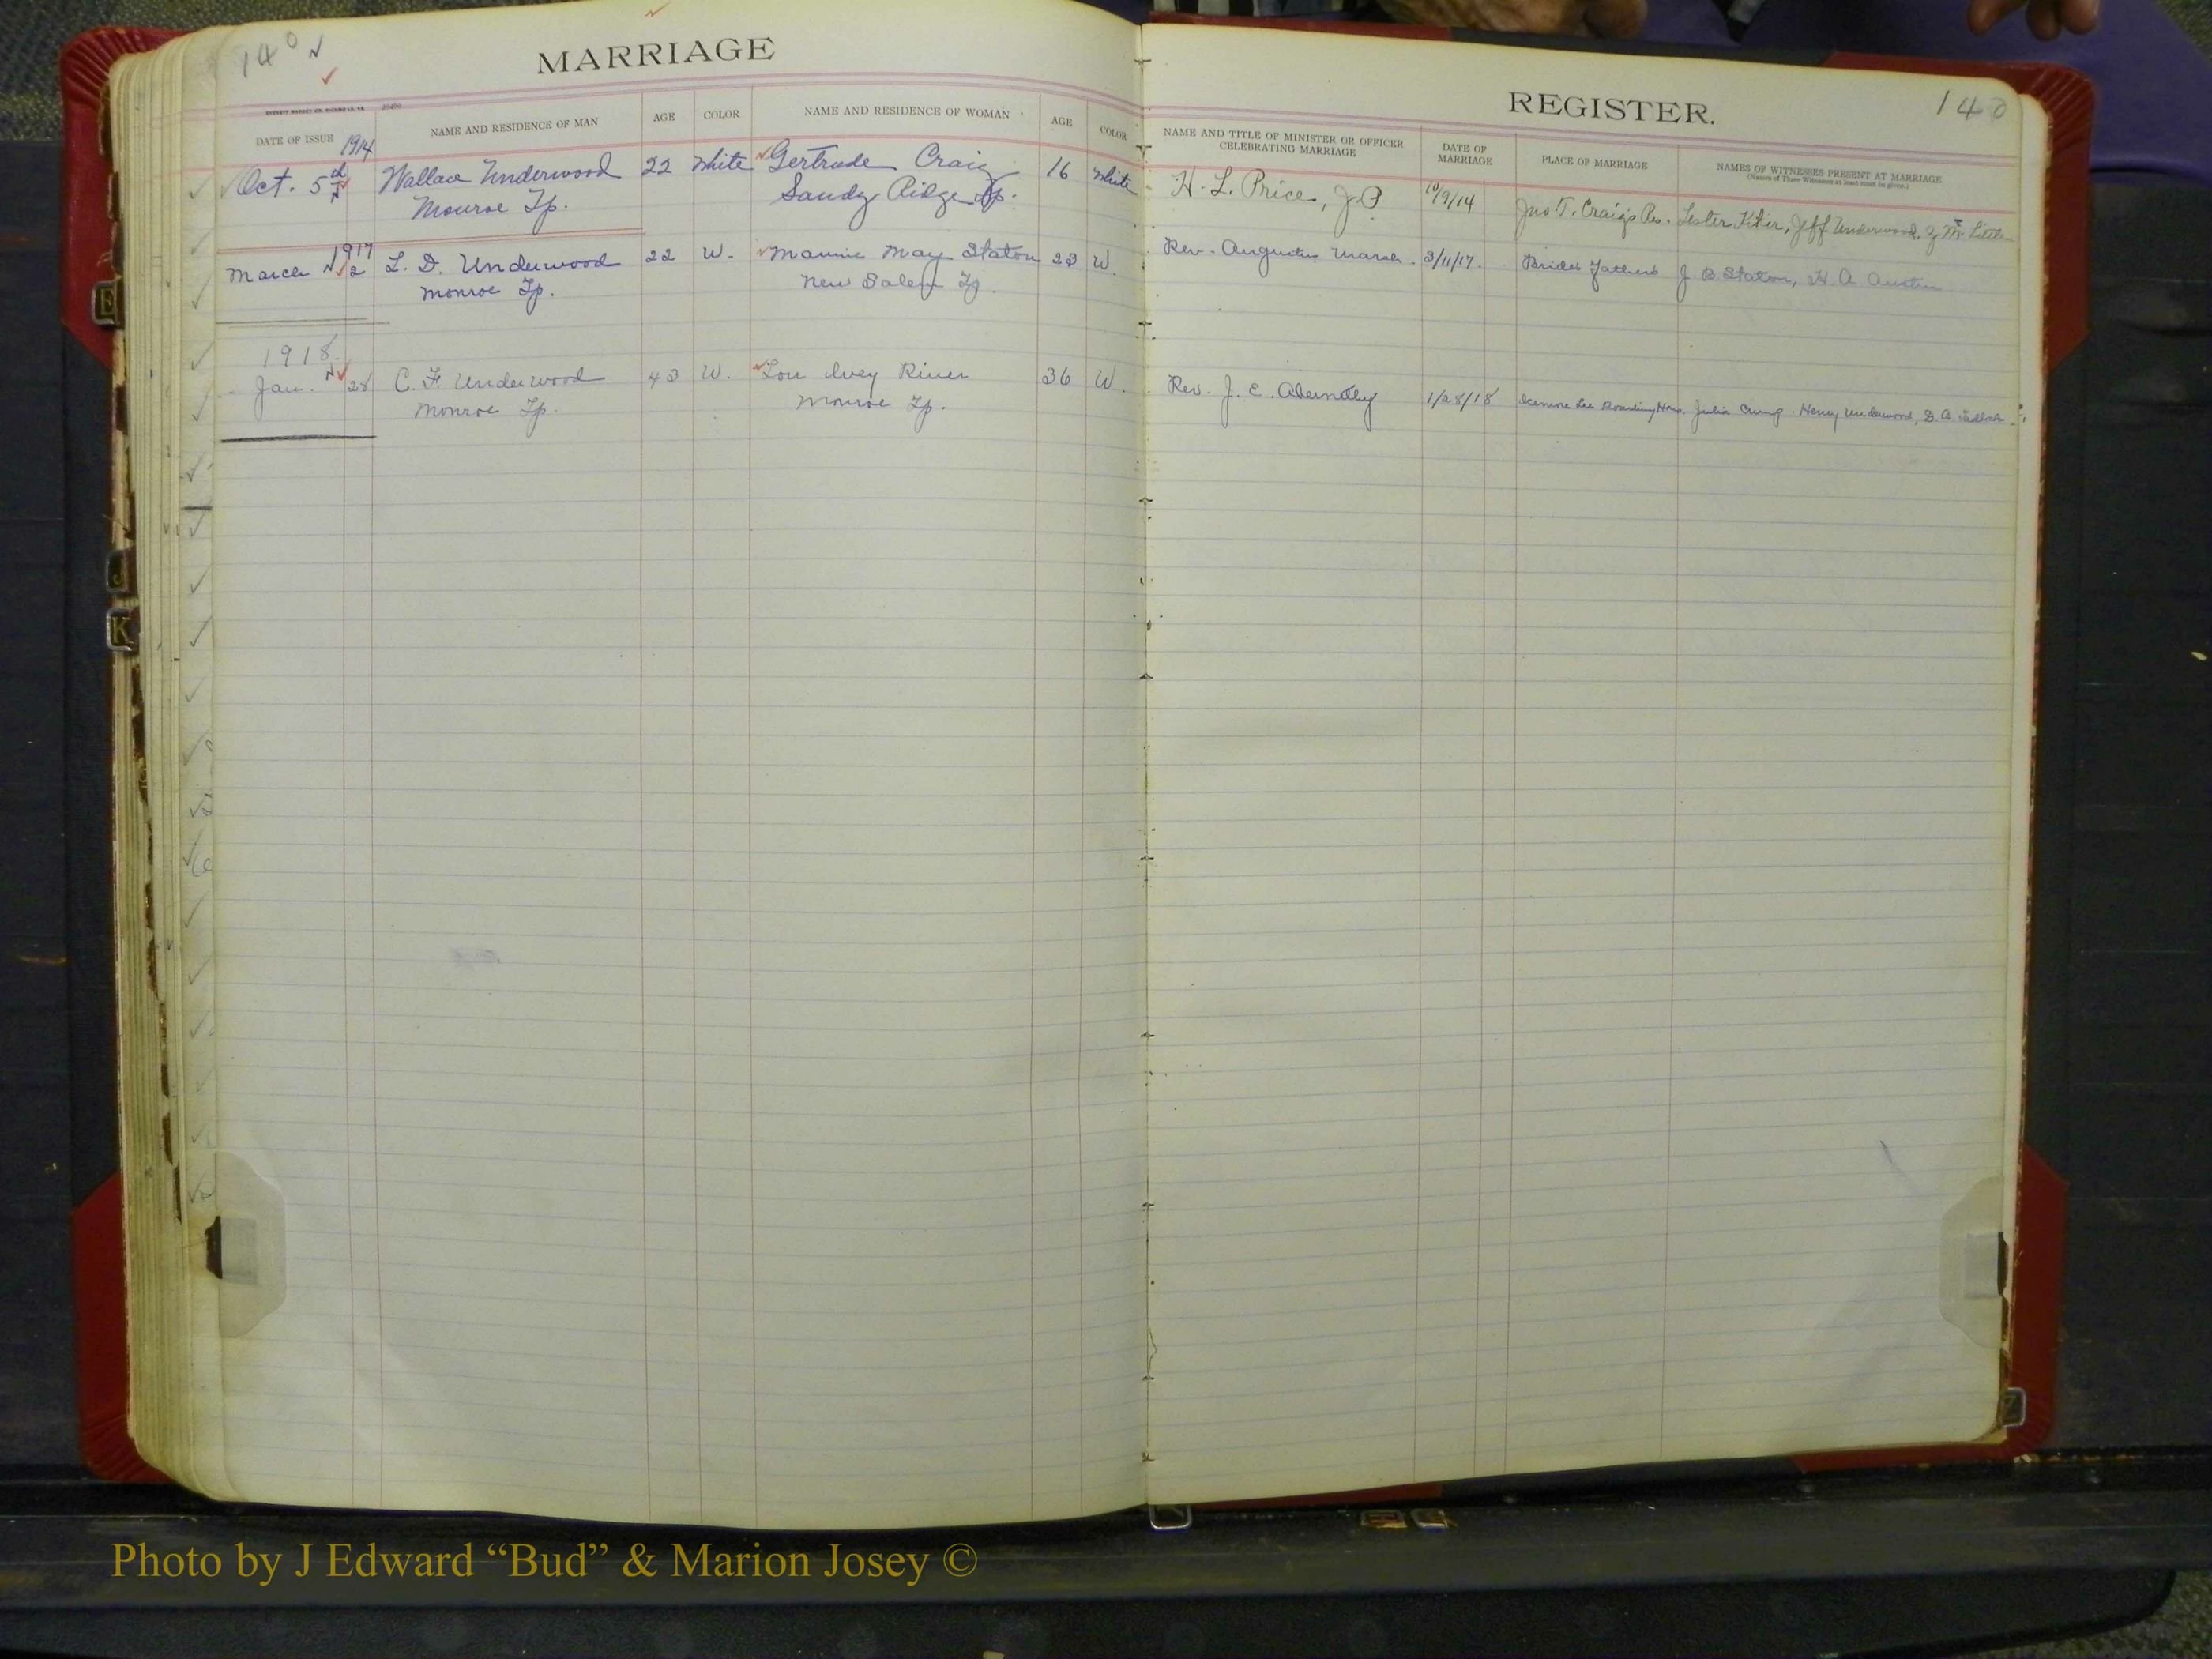 140
MARRIAGE
DATE OF ISSUE
NAME AND RESIDENCE OF MAN
AGE
COLOR
NAME AND RESIDENCE OF WOMAN
AGE
COLOR
1914
Oct. 5th
Wallace Underwood
22
White
Gertrude Craig
16
White
Monroe Tp.
Sandy Ridge Tp.
1917
March 2
L. D. Underwood
22
W.
Mamie May Staton
23
W.
Monroe Tp.
New Salem Tp.
1918
Jan. 28
C. F. Underwood
43
W.
Lou Ivey
36
W.
Monroe Tp.
Monroe Tp.
REGISTER.
140
NAME AND TITLE OF MINISTER OR OFFICER
CELEBRATING MARRIAGE
DATE OF
MARRIAGE
PLACE OF MARRIAGE
NAMES OF WITNESSES PRESENT AT MARRIAGE
(Names of Three Witnesses at least must be given.)
H. L. Price, J.P.
10/9/14
Jno. T. Craig's Res.
Lester Kiker, Jeff Underwood,
Rev. Augustus Marsh.
3/11/17.
Brides Fathers
J. B. Staton, H. A. Austin
Rev. J. E. Abernethy
1/28/18
Boarding
Julia
Henry Underwood, D. A.
E
J
K
Z
Photo by J Edward “Bud” & Marion Josey ©